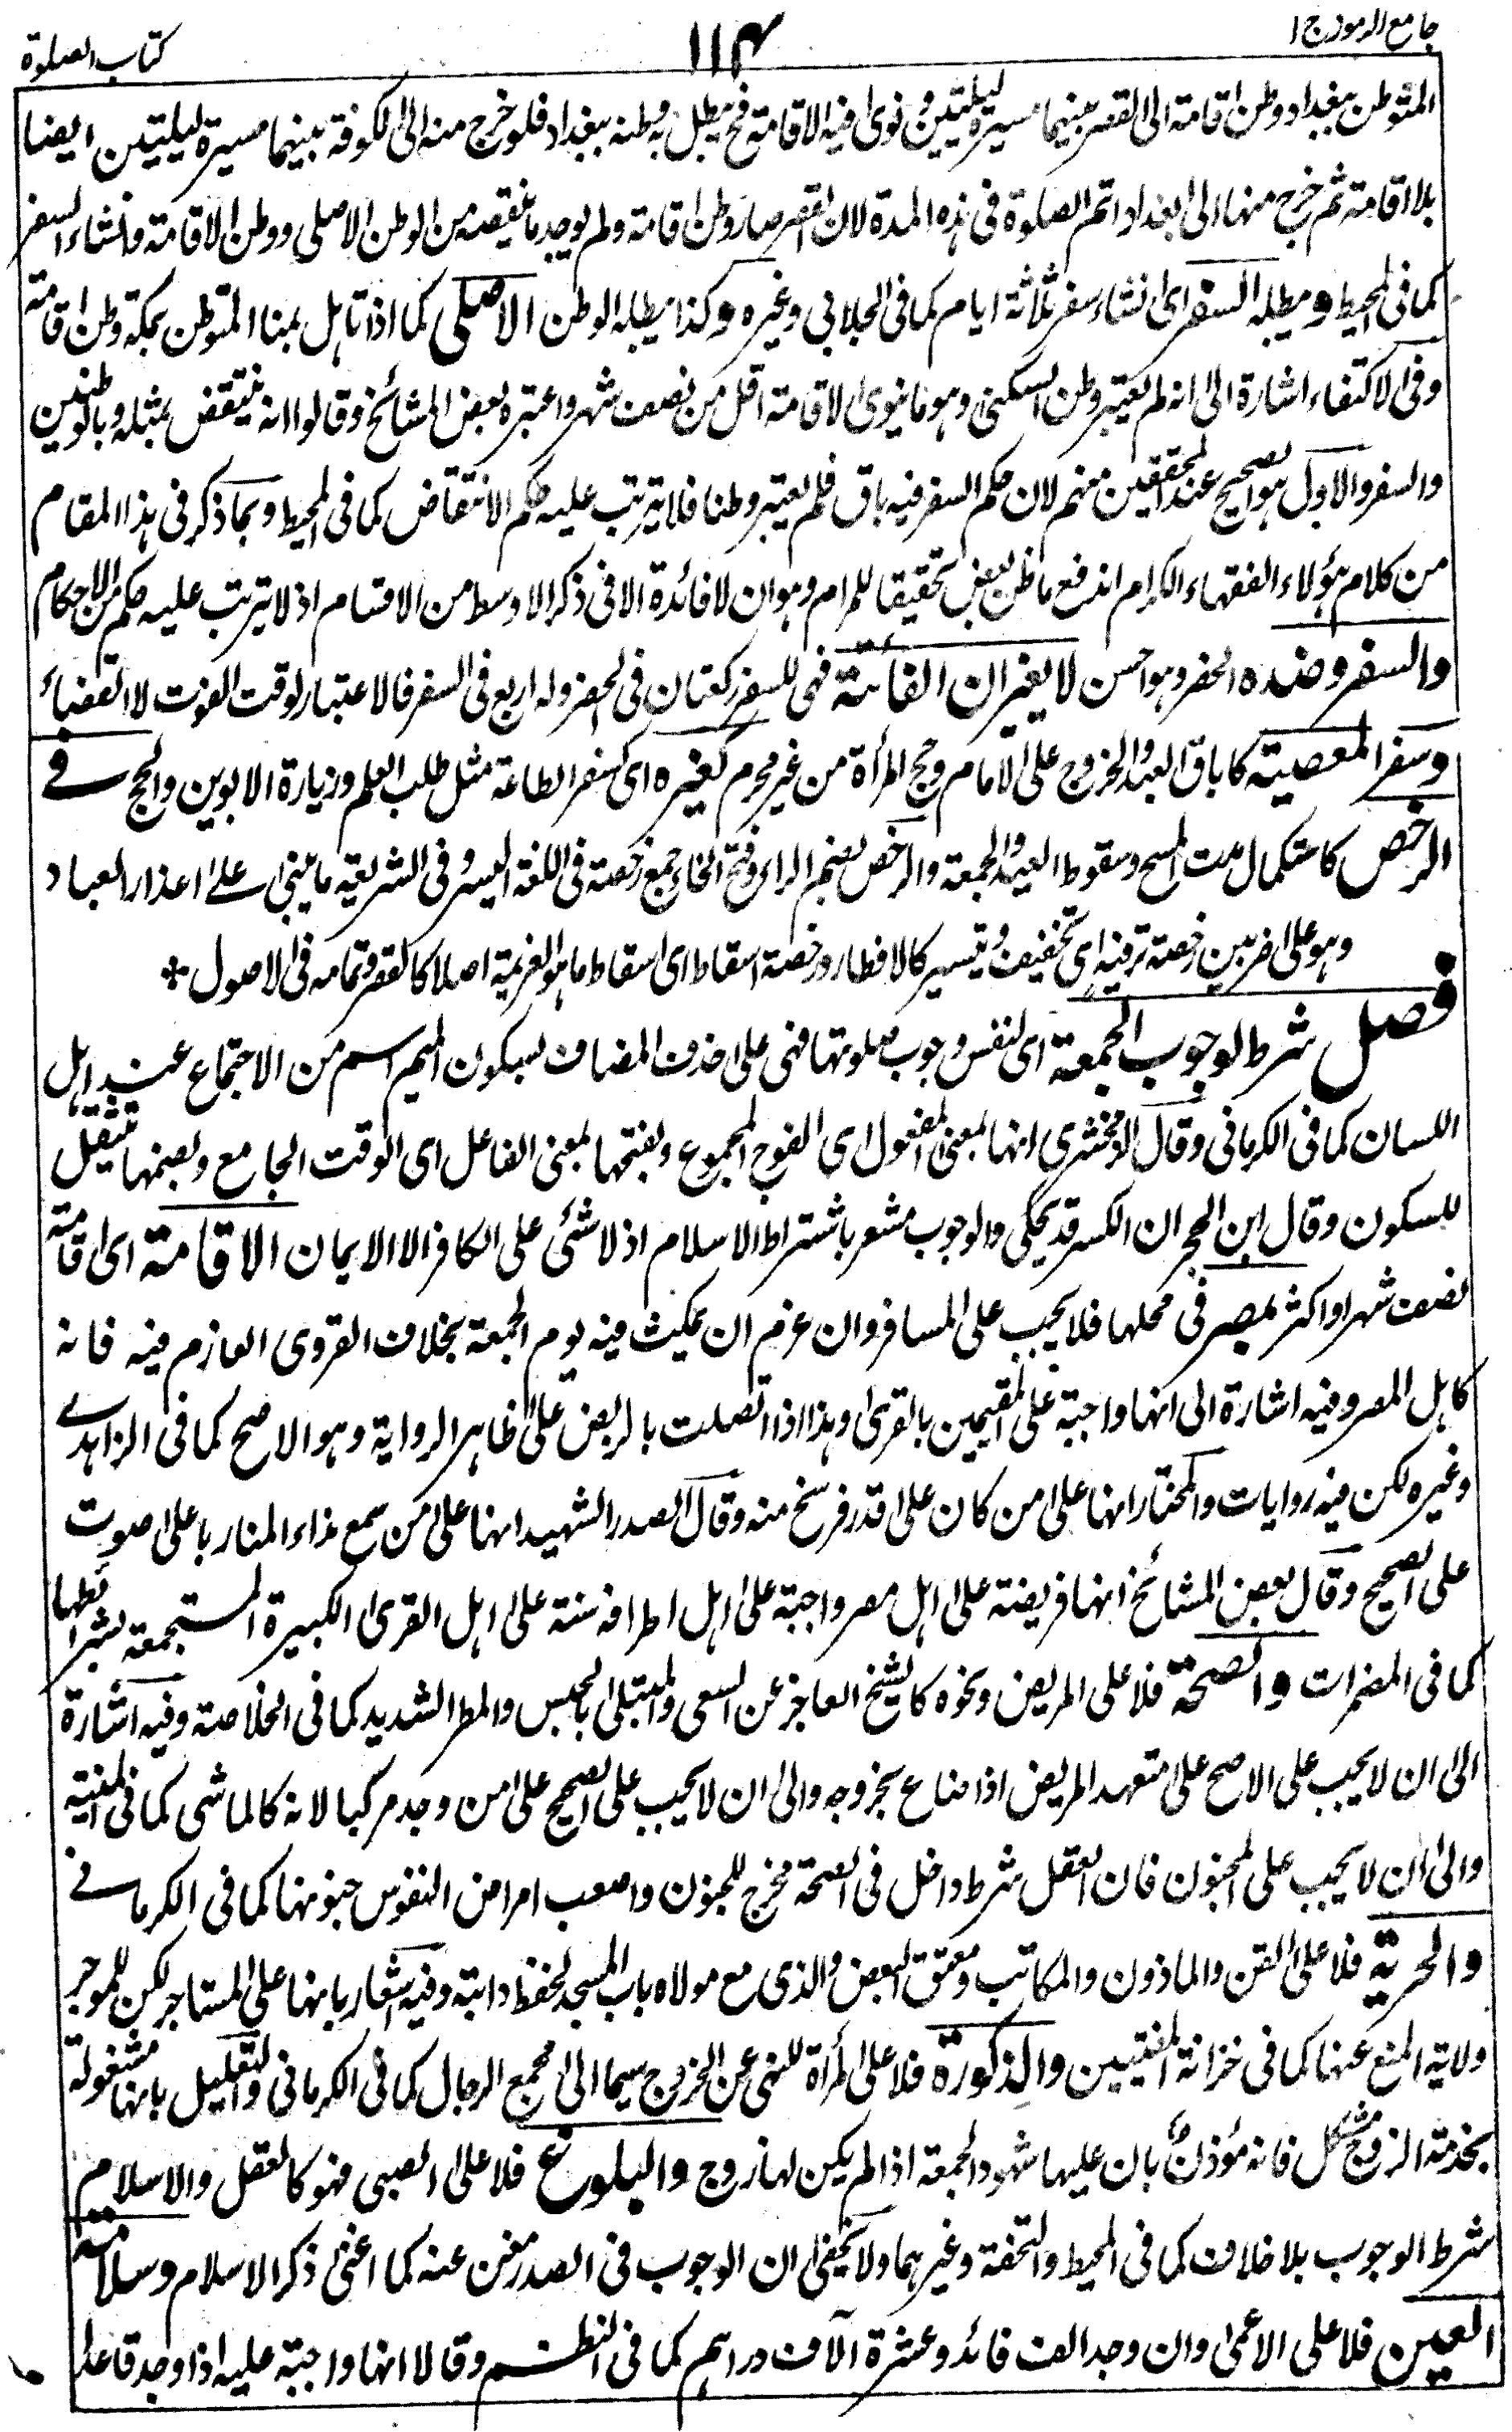 جامع الرموز ج ١
١١٤
كتاب الصلوة
المتوطن ببغداد وطن اقامة الى القصر بينهما مسيرة ليلتين ونوى فيه الاقامة فح يبطل به وطنه ببغداد فلو خرج منه الى الكوفة بينهما مسيرة ليلتين ايضا
بلا اقامة ثم خرج منها الى بغداد اتم الصلوة فى هذه المدة لان القصر صار وطن اقامة ولم يوجد ما ينقضه من الوطن الاصلى ووطن الاقامة وانشاء السفر
كما فى المحيط ويبطله السفر اى انشاء سفر ثلثة ايام كما فى الجلابى وغيره وكذا يبطله الوطن الاصلى كما اذا تاهل بمنا المتوطن بمكة وطن اقامة
وفى الاكتفاء اشارة الى انه لم يعتبر وطن السكنى وهو ما ينوى الاقامة اقل من نصف شهر واعتبره بعض المشائخ وقالوا انه ينتقض بمثله وبالوطنين
والسفر والاول هو الصحيح عند المحققين منهم لان حكم السفر فيه باق فلم يعتبر وطنا فلا يترتب عليه حكم الانتقاض كما فى المحيط وبما ذكر فى هذا المقام
من كلام هؤلاء الفقهاء الكرام اندفع ما ظن بعض تحقيقا للمرام وهو ان لا فائدة الا فى ذكر الاوسط من الاقسام اذ لا يترتب عليه حكم من الاحكام
والسفر وضده الحضر وهو احسن لا يغيران الفائتة فهى للسفر ركعتان فى الحضر وله اربع فى السفر فالاعتبار لوقت الفوت لا القضاء
وسفر المعصية كاباق العبد والخروج على الامام وحج المرأة من غير محرم كغيره اى كسفر الطاعة مثل طلب العلم وزيارة الابوين والحج فى
الرخص كاستكمال مدت المسح وسقوط العيد والجمعة والرخص بضم الراء وفتح الخاء جمع رخصة فى اللغة اليسر وفى الشريعة ما يبنى على اعذار العباد
وهو على ضربين رخصة ترفيه اى تخفيف وتيسير كالافطار ورخصة اسقاط اى اسقاط ما هو العزيمة اصلا كالقصر وتمامه فى الاصول *
فصل شرط لوجوب الجمعة اى لنفس وجوب صلوتها فهى على حذف المضاف بسكون الميم اسم من الاجتماع عند اهل
اللسان كما فى الكرمانى وقال الزمخشرى انها بمعنى المفعول اى الفوج المجموع وبفتحها بمعنى الفاعل اى الوقت الجامع وبضمها تثقيل
للسكون وقال ابن الحجر ان الكسر قد يحكى والوجوب مشعر باشتراط الاسلام اذ لا شئ على الكافر الا الايمان الاقامة اى اقامة
نصف شهر او اكثر بمصر فى محلها فلا يجب على المسافر وان عزم ان يمكث فيه يوم الجمعة بخلاف القروى العازم فيه فانه
كاهل المصر وفيه اشارة الى انها واجبة على المقيمين بالقرى وهذا اذا اتصلت بالربض على ظاهر الرواية وهو الاصح كما فى الزاهدى
وغيره لكن فيه روايات والمختار انها على من كان على قدر فرسخ منه وقال الصدر الشهيد انها على من سمع نداء المنار باعلى صوت
على الصحيح وقال بعض المشائخ انها فريضة على اهل مصر واجبة على اهل اطرافه سنة على اهل القرى الكبيرة المستجمعة بشرائطها
كما فى المضمرات والصحة فلا على المريض ونحوه كالشيخ العاجز عن السعى والمبتلى بالحبس والمطر الشديد كما فى الخلاصة وفيه اشارة
الى ان لا يجب على الاصح على متعهد المريض اذا ضاع بخروجه والى ان لا يجب على الصحيح على من وجد مركبا لانه كالماشى كما فى المنية
والى ان لا يجب على المجنون فان العقل شرط داخل فى الصحة مخرج للمجنون واصعب امراض النفوس جنونها كما فى الكرمانى
والحرية فلا على القن والماذون والمكاتب ومعتق البعض والذى مع مولاه باب المسجد لحفظ دابته وفيه اشعار بانها على المستاجر لكن للموجر
ولاية المنع عنها كما فى خزانة المفتيين والذكورة فلا على المرأة للنهى عن الخروج سيما الى مجمع الرجال كما فى الكرمانى والتعليل بانها مشغولة
بخدمة الزوج مشكل فانه مؤذن بان عليها شهود الجمعة اذا لم يكن لها زوج والبلوغ فلا على الصبى فهو كالعقل والاسلام
شرط الوجوب بلا خلاف كما فى المحيط والتحفة وغيرهما ولا يخفى ان الوجوب فى الصدر مغن عنه كما اغنى ذكر الاسلام وسلامة
العين فلا على الاعمى وان وجد الف قائد وعشرة آلاف دراهم كما فى النظم وقالا انها واجبة عليه اذا وجد قاعدا